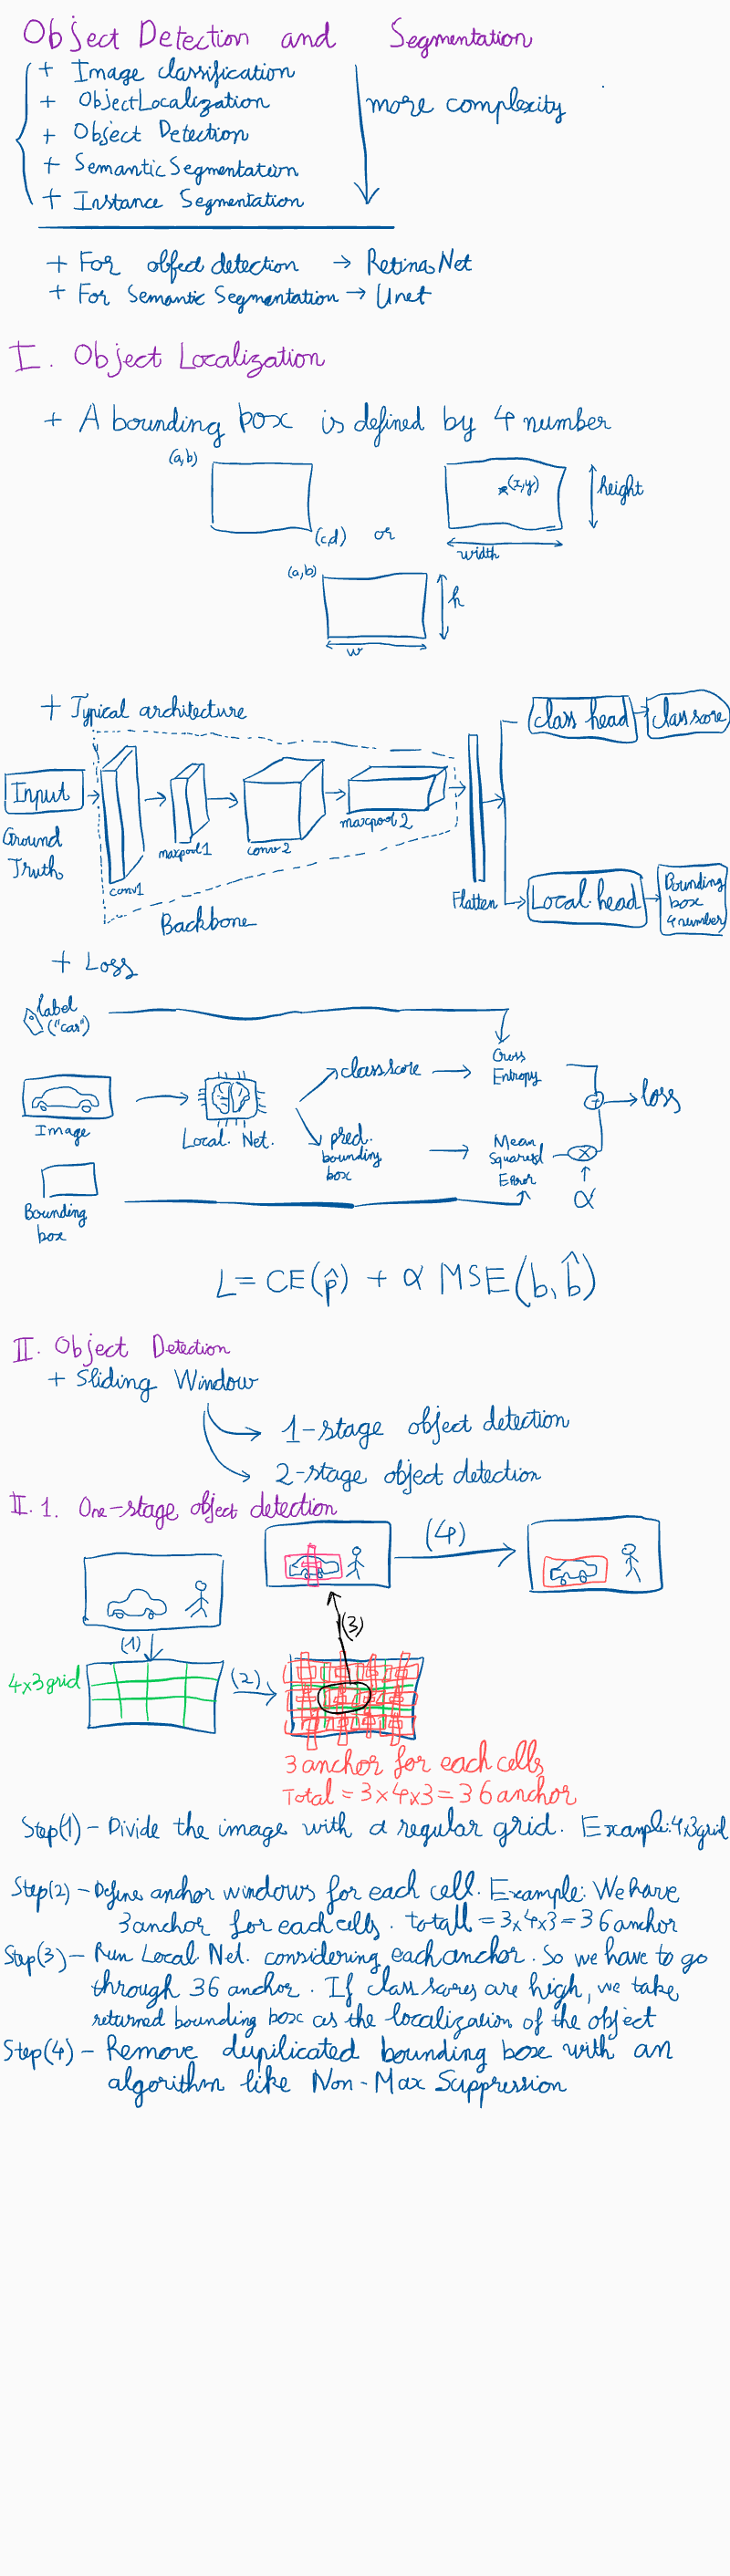 Object Detection and Segmentation
+ Image classification
+ Object Localization
+ Object Detection
+ Semantic Segmentation
+ Instance Segmentation
more complexity
+ For object detection → RetinaNet
+ For Semantic Segmentation → Unet
I. Object Localization
+ A bounding box is defined by 4 number
(a,b)
(c,d)
or
(x,y)
height
width
(a,b)
h
w
+ Typical architecture
Class head
Class score
Input
Ground Truth
conv1
maxpool1
conv2
maxpool2
Backbone
Flatten
Local. head
Bounding
box
4 number
+ Loss
label
("car")
Image
Local. Net.
class score
Cross
Entropy
+
loss
pred.
bounding
box
Mean
Squared
Error
×
α
Bounding
box
L = CE(p̂) + α MSE(b, b̂)
II. Object Detection
+ Sliding Window
1-stage object detection
2-stage object detection
II. 1. One-stage object detection
(4)
(3)
(1)
4x3 grid
(2)
3 anchor for each cells
Total = 3x4x3 = 36 anchor
Step(1) - Divide the image with a regular grid. Example: 4x3 grid
Step(2) - Define anchor windows for each cell. Example: We have
3 anchor for each cells. totall = 3x4x3 = 36 anchor
Step(3) - Run Local Net. considering each anchor. So we have to go
through 36 anchor. If class scores are high, we take
returned bounding box as the localization of the object
Step(4) - Remove dupilicated bounding box with an
algorithm like Non-Max Suppression